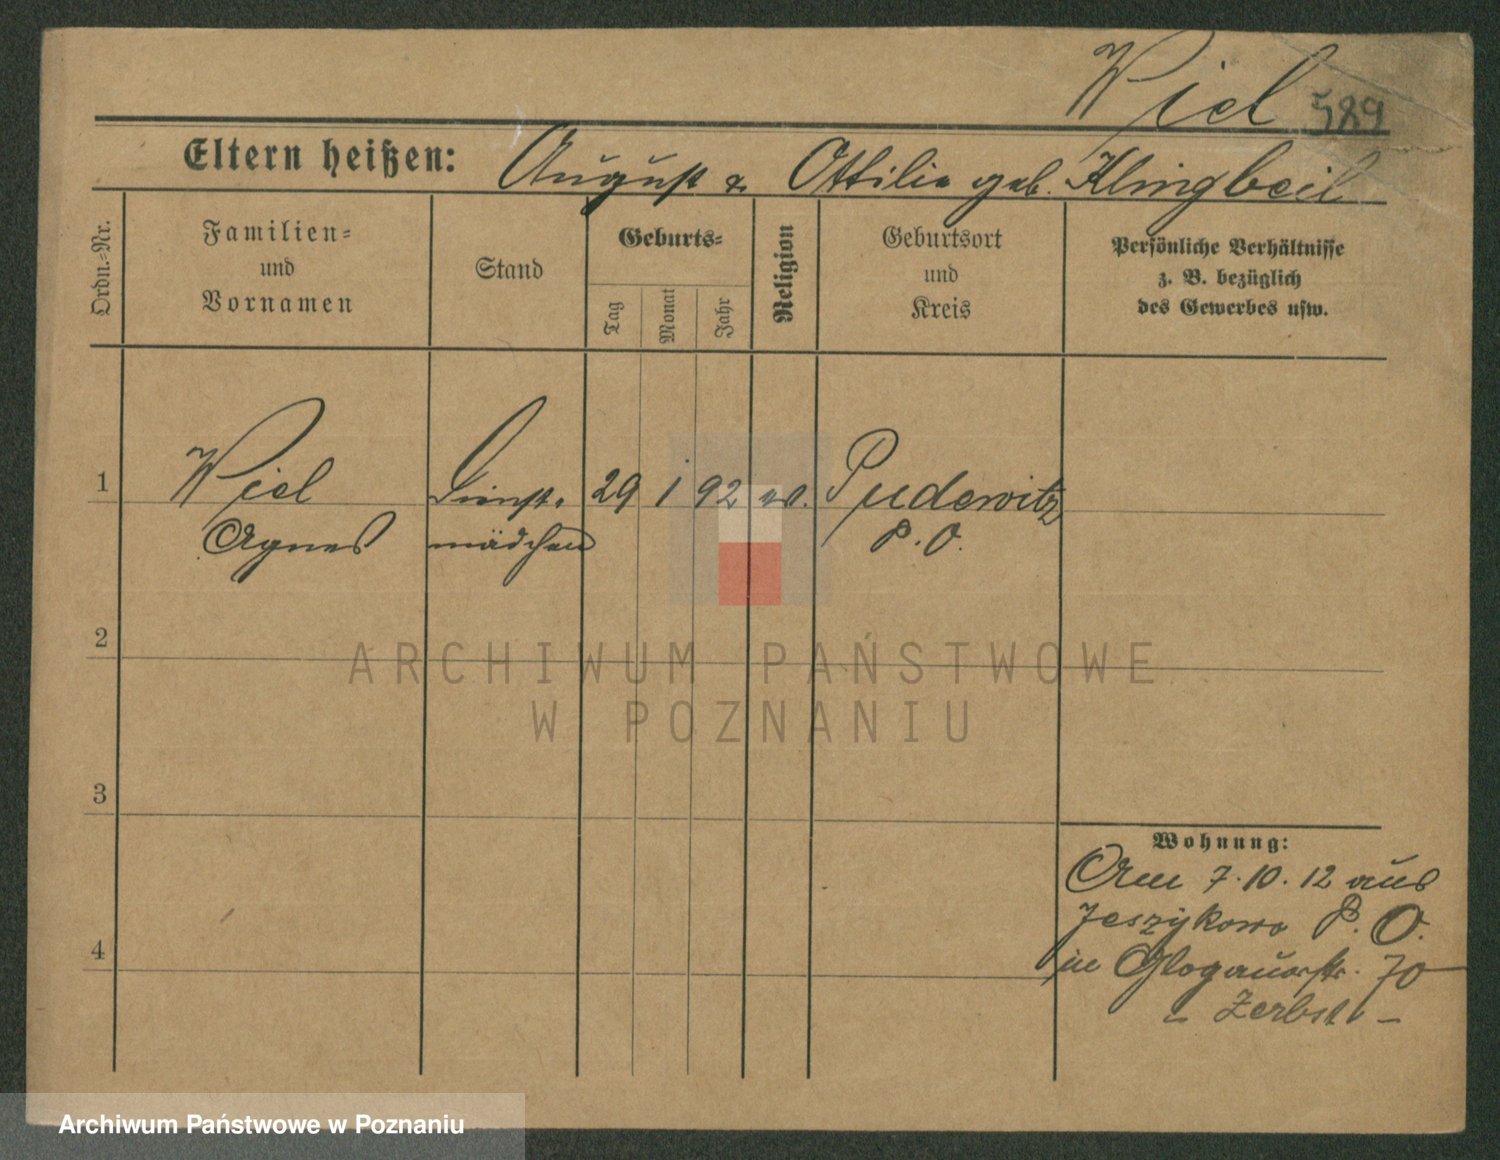 Wiel 589
Eltern heißen: August & Ottilie geb. Klingbeil
Ordn.-Nr.
Familien- und Vornamen
Stand
Geburts-
Tag
Monat
Jahr
Religion
Geburtsort und Kreis
Persönliche Verhältnisse
z. B. bezüglich
des Gewerbes usw.
1 Wiel Dienst- 29 1 92 ev. Pudewitz
Agnes mädchen P. O.
2
ARCHIWUM PAŃSTWOWE
W POZNANIU
3
Wohnung:
Am 7.10.12 aus
Jeszykowo P. O.
4
in Glogauerstr. 70
- Zerbst -
Archiwum Państwowe w Poznaniu